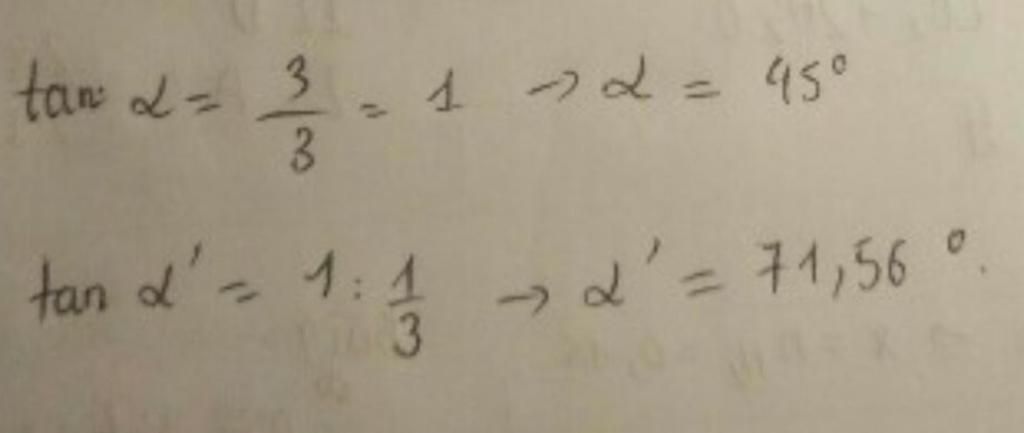 tan α = 3/3 = 1 → α = 45°
tan α' = 1 : 1/3 → α' = 71,56°.